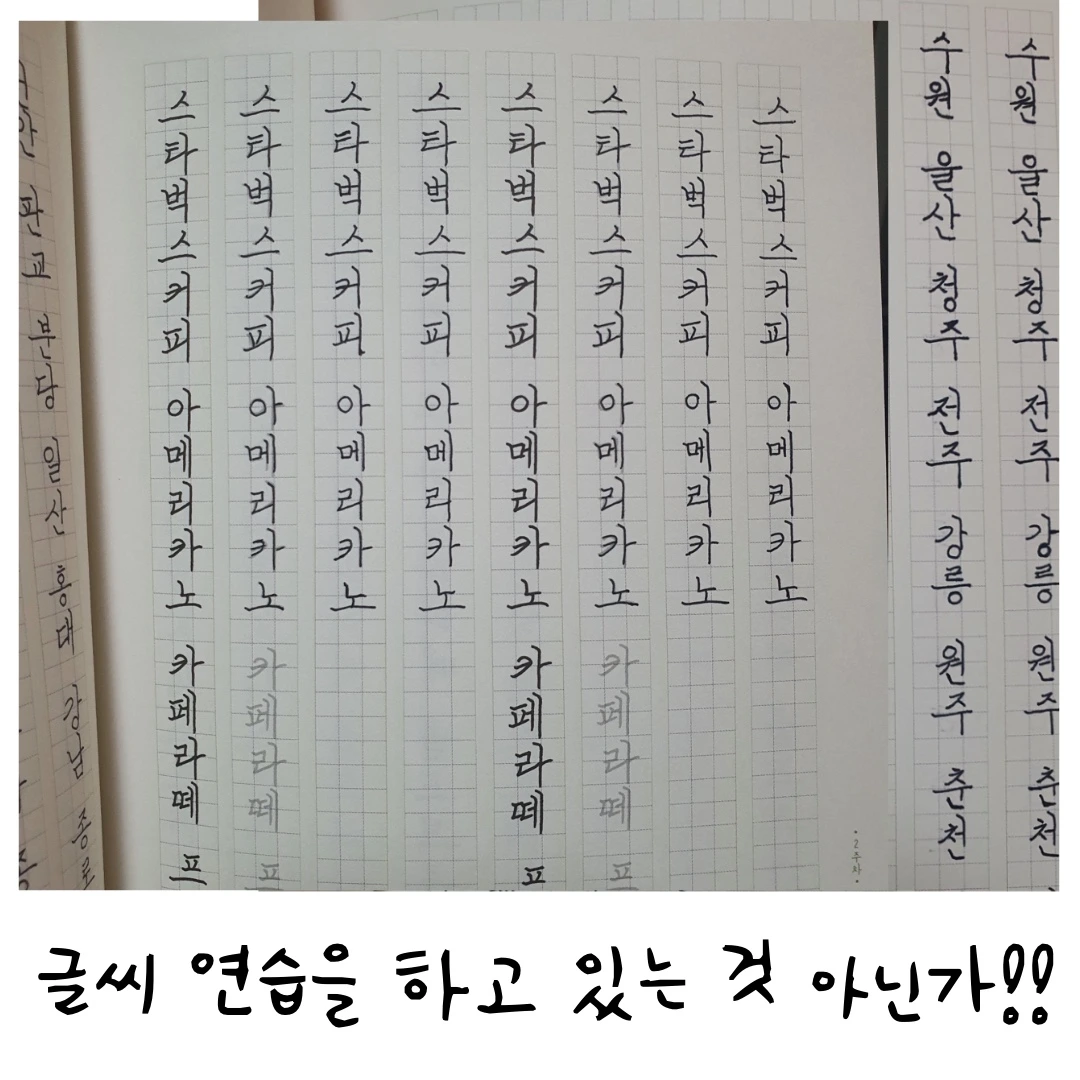 판교 분당 일산 홍대 강남 종로
스타벅스커피 아메리카노 카페라떼 프
스타벅스커피 아메리카노 카페라떼
스타벅스커피 아메리카노
스타벅스커피 아메리카노
스타벅스커피 아메리카노 카페라떼
스타벅스커피 아메리카노 카페라떼
스타벅스커피 아메리카노
스타벅스커피 아메리카노
•2주차•
수원 울산 청주 전주 강릉 원주 춘천
수원 울산 청주 전주 강릉 원주 춘천
글씨 연습을 하고 있는 것 아닌가!!